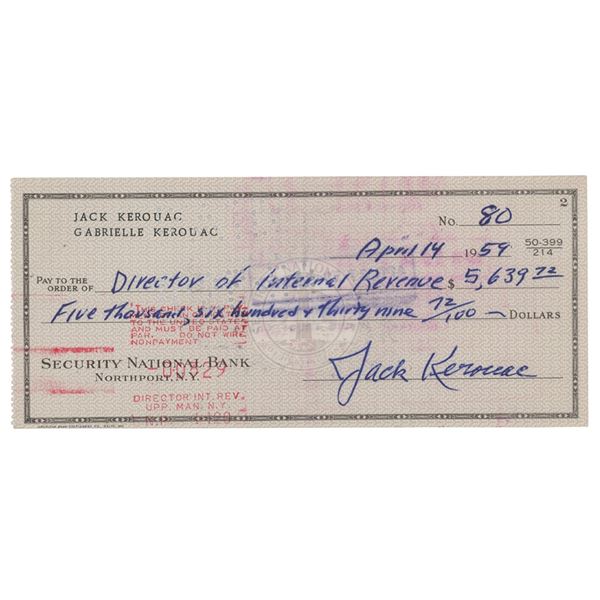 2
JACK KEROUAC
GABRIELLE KEROUAC
No. 80
April 14 1959
50-399
214
PAY TO THE ORDER OF Director of Internal Revenue $ 5,639 72
Five thousand, six hundred & thirty nine 72/100 — DOLLARS
TO THE UNITED STATES
AND MUST BE PAID AT
PAR. DO NOT WIRE
NONPAYMENT
SECURITY NATIONAL BANK
NORTHPORT, N.Y.
-00829
Jack Kerouac
DIRECTOR INT. REV.
UPP. MAN. N.Y.